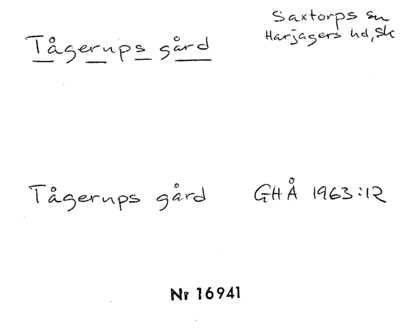 Tågerups gård
Saxtorps sn
Harjagers hd, Sk
Tågerups gård GHÅ 1963:12
Nr 16941